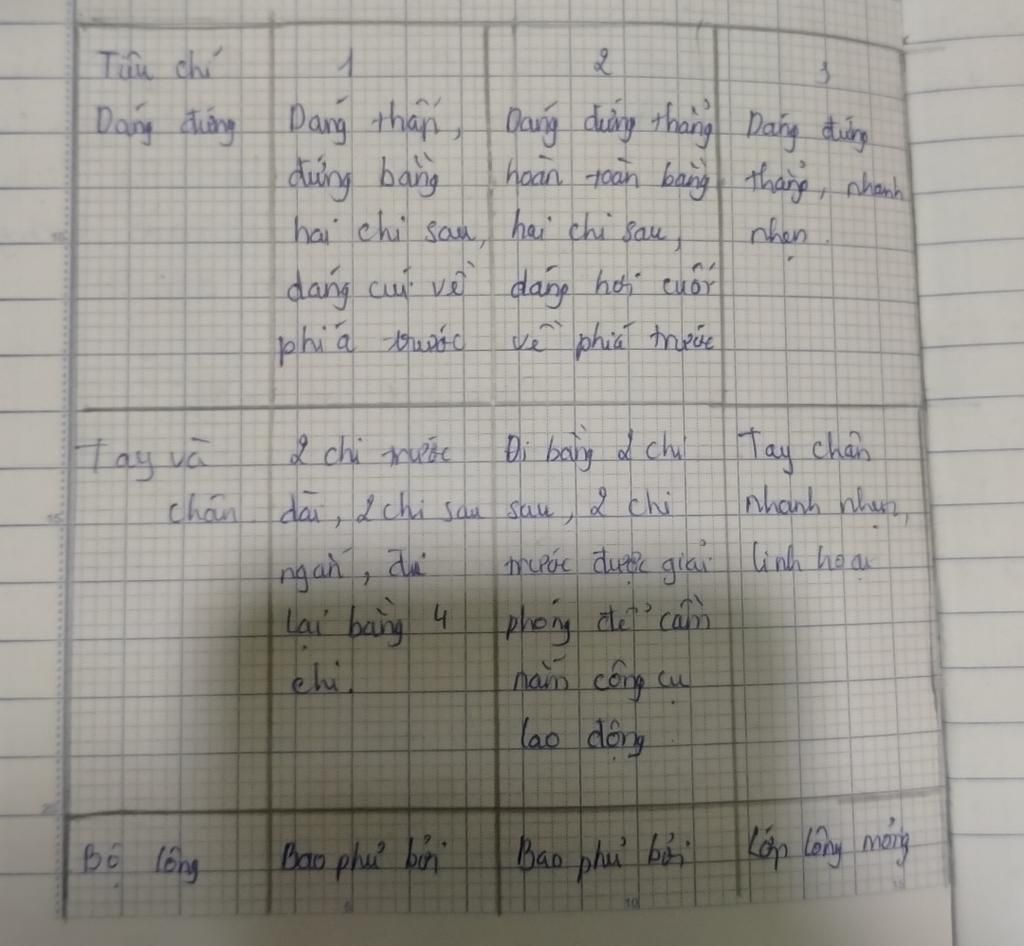 Tiêu chí 1 2 3
Dáng đứng Dáng thấp, Dáng đứng thẳng Dáng đứng
đứng bằng hoàn toàn bằng thẳng, nhanh
hai chi sau, hai chi sau, nhẹn.
dáng cúi về dáng hơi cuối
phía trước về phía trước
Tay và 2 chi trước Đi bằng 2 chi Tay chân
chân dài, 2 chi sau sau, 2 chi nhanh nhẹn,
ngắn, đi trước được giải linh hoạt
lại bằng 4 phóng để cầm
chi. nắm công cụ
lao động
Bộ lông Bao phủ bởi Bao phủ bởi Lớp lông mỏng